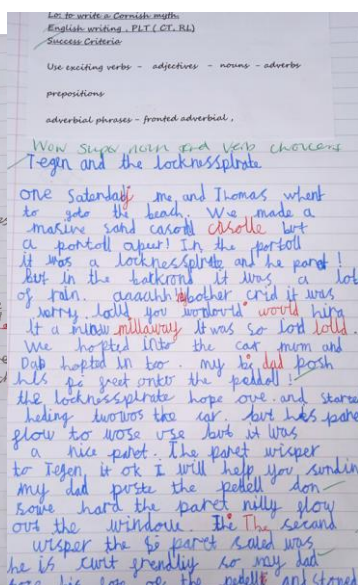 Lo: to write a Cornish myth.
English writing, PLT ( CT, RL)
Success Criteria
Use exciting verbs - adjectives - nouns - adverbs
prepositions
adverbial phrases - fronted adverbial,
Wow super noun and verb choices
Tegen and the locknessplrate
one Saterday me and Thomas whent
to goto the beach. We made a
masive sand casolle but
a portoll apert! In the portoll
it was a locknessplrate and he parot!
but in the it was a lot
of rain. aaaahh bother crid it was
sorry. lolly you would hing
It a millaway It was so lolld.
We hopted into the car mum and
Dad hopted in too. my dad posh
his greet onto the peddoll!
the locknessplrate hope ove. and starte
heding the car. but his pare
flow to wose use but it was
a nice parot. The parot wisper
to Tegen, it ok I will help you sundin
my dad puste the pedell don
sowe hard the parot nilly flow
out the window. The secand
wisper the parot saled was
he is curt grendliy so my dad
the pedell and